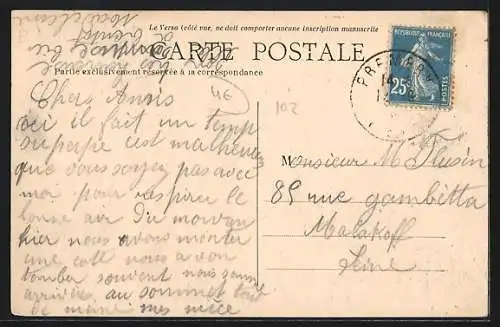 Le Verso (côté vue, ne doit comporter aucune inscription manuscrite
CARTE POSTALE
Partie exclusivement réservée à la correspondance
RÉPUBLIQUE FRANÇAISE
25c
POSTES
4E
102
Chers Amis
ici il fait un temps
superpe c'est malheureu
que vous soyez pas avec
moi pour respirer le
bonne air du morvan
hier nous avons monter
une cote nous avon
tomber souvent nous somme
arrivées au sommet tout
de même mes
Monsieur M
85 rue gambetta
Malakoff
Seine